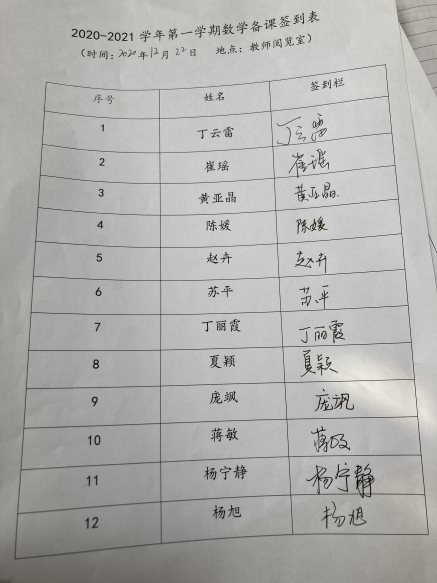 2020-2021 学年第一学期数学备课签到表
（时间：2020年12月22日 地点：教师阅览室）
序号 姓名 签到栏
1 丁云雷 丁云雷
2 崔瑶 崔瑶
3 黄亚晶 黄亚晶
4 陈媛 陈媛
5 赵卉 赵卉
6 苏平 苏平
7 丁丽霞 丁丽霞
8 夏颖 夏颖
9 庞飒 庞飒
10 蒋敏 蒋敏
11 杨宁静 杨宁静
12 杨旭 杨旭